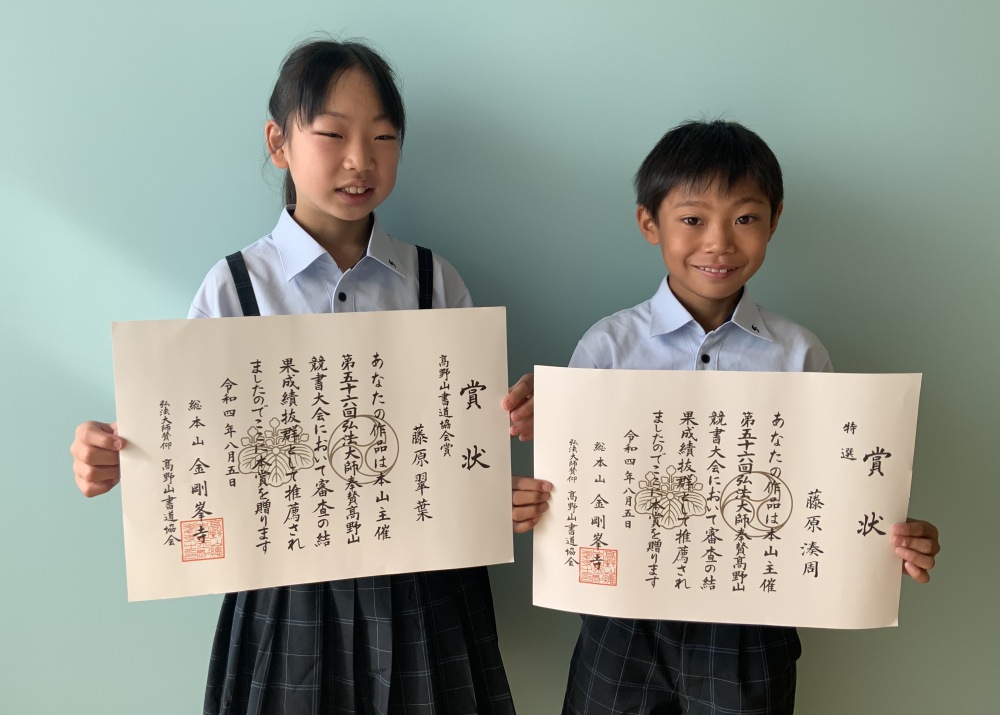 賞状
高野山書道協会賞
藤原翠葉
あなたの作品は本山主催
第五十六回弘法大師奉賛高野山
競書大会において審査の結
果成績抜群として推薦され
ましたのでここに本賞を贈ります
令和四年八月五日
総本山金剛峯寺
弘法大師賛仰高野山書道協会
賞状
特選
藤原湊周
あなたの作品は本山主催
第五十六回弘法大師奉賛高野山
競書大会において審査の結
果成績抜群として推薦され
ましたのでここに本賞を贈ります
令和四年八月五日
総本山金剛峯寺
弘法大師賛仰高野山書道協会